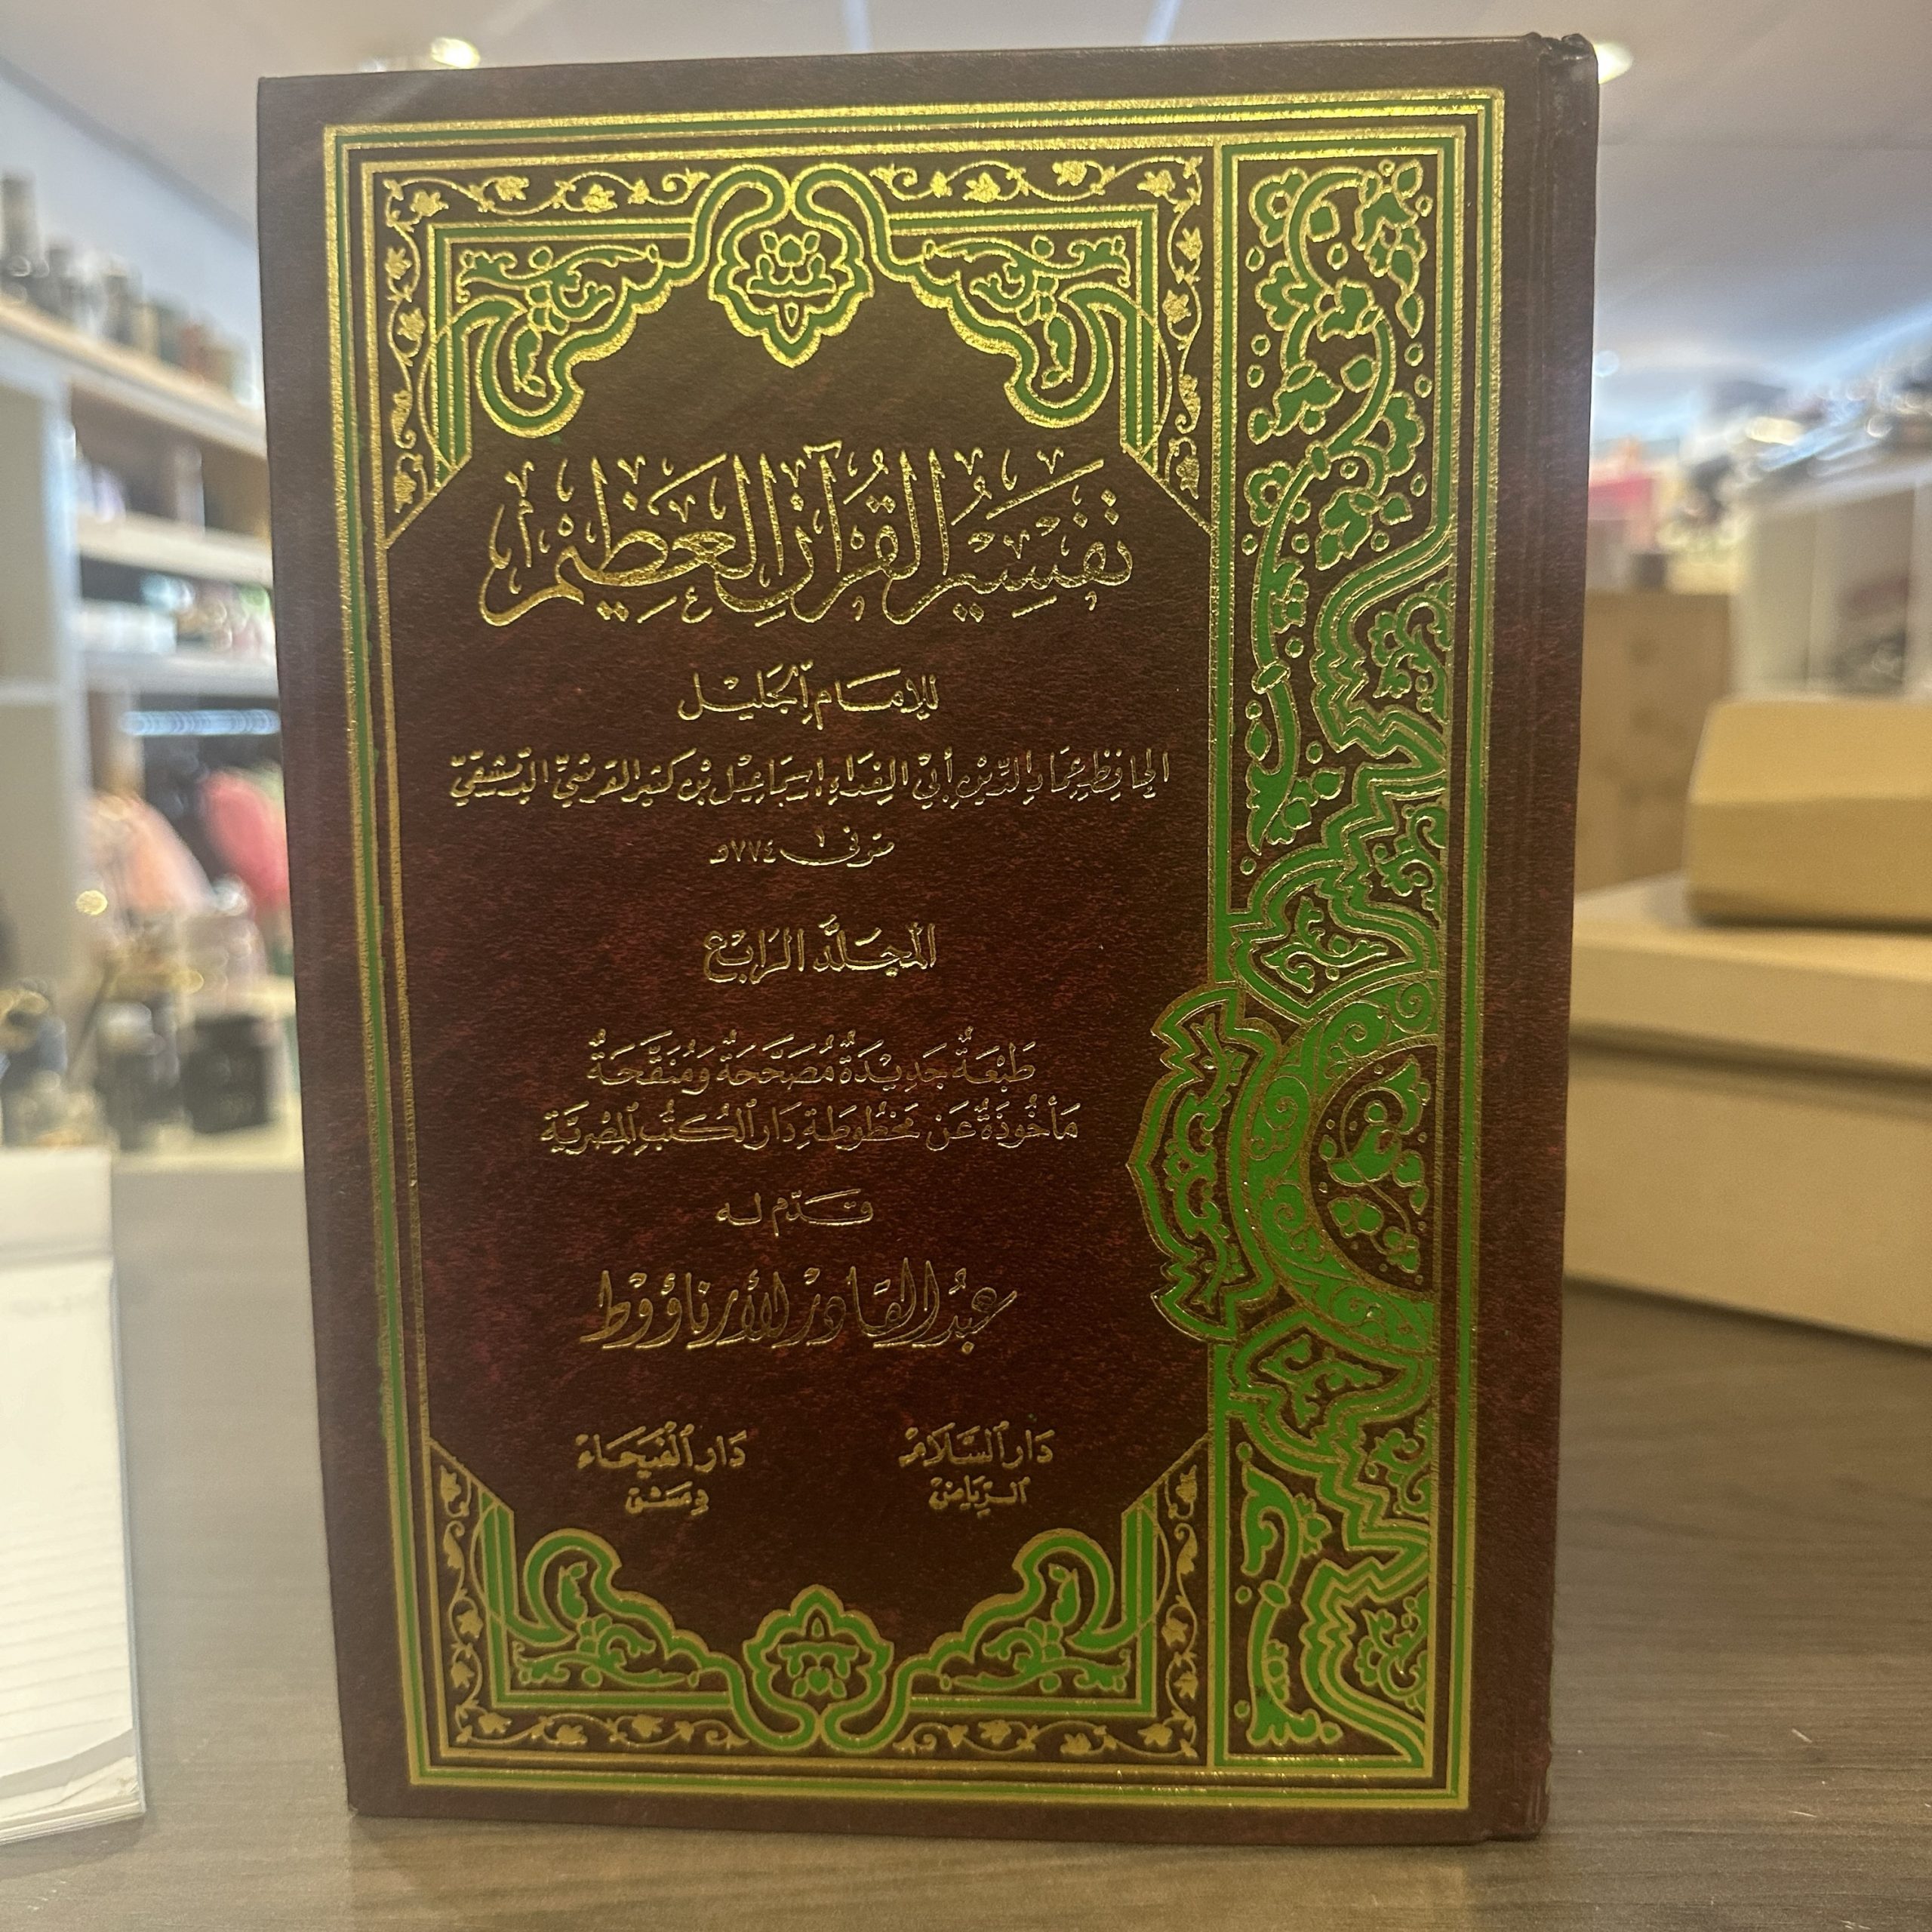 تَفْسِيْرُ القُرآنِ العَظِيْمِ
للإِمَامِ الجَلِيْل
الحَافِظِ عِمَادِ الدِّيْنِ أَبِي الفِدَاءِ اسمَاعِيْل بْن كَثِيْر القُرَشِيِّ الدِّمَشْقِيّ
متوفى ٧٧٤هـ
المجَلَّد الرَابِع
طَبْعَةٌ جَدِيْدَةٌ مُصَحَّحَةٌ وَمُنَقَّحَةٌ
مَأخُوذَةٌ عَن مَخْطُوطَةِ دَارِ الكُتُبِ المِصْرِيَّة
قَدَّم لَه
عَبْدُ القَادِرْ الأَرنَاؤُوط
دَار السَّلَامْ دَار الفَيْحَاءْ
الرِّيَاضْ دِمَشْق